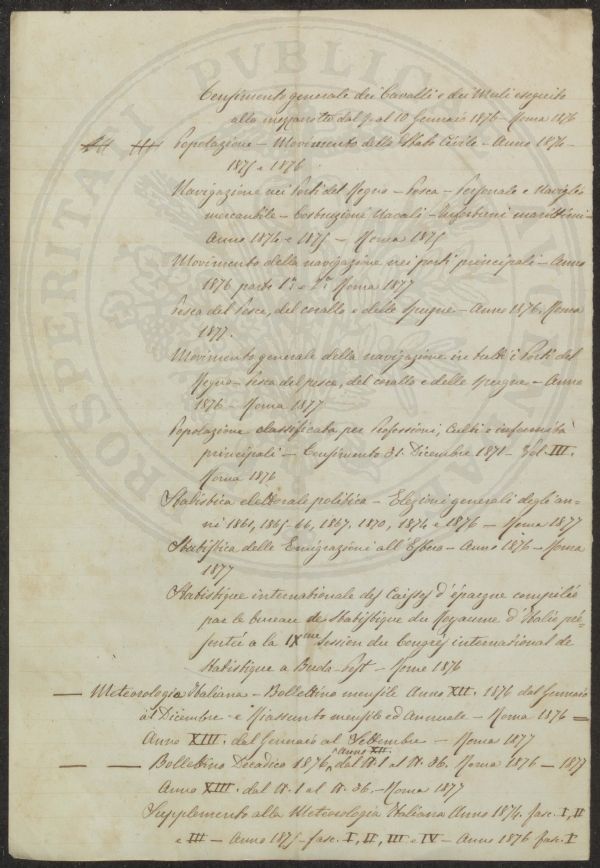 Censimento generale dei Cavalli e dei Muli eseguito
alla mezzanotte dal 9 al 10 Gennaio 1876 - Roma 1876
Popolazione - Movimento dello Stato Civile - Anno 1874 -
1875 e 1876.
Navigazione nei Porti del Regno - Pesca - Personale e Naviglio
mercantile - Costruzioni Navali - Infortuni marittimi -
Anno 1874 e 1875 - Roma 1875
Movimento della navigazione nei porti principali - Anno
1876 parte 1a e 2a Roma 1877
Pesca del Pesce, del corallo e delle spugne - Anno 1876. Roma
1877.
Movimento generale della navigazione in tutti i Porti del
Regno - Pesca del pesce, del corallo e delle spugne - Anno
1876 - Roma 1877
Popolazione classificata per Professioni, Culti e infermità
principali - Censimento 31. Dicembre 1871 - Vol. III.
Roma 1876
Statistica elettorale politica - Elezioni generali degli an-
ni 1861, 1865-66, 1867, 1870, 1874 e 1876 - Roma 1877
Statistica delle Emigrazioni all'Estero - Anno 1876 - Roma
1877
Statistique internationale des Caisses d'épargne compilée
par le bureau de Statistique du Royaume d'Italie pré-
sentée a la IXme Session du Congrès international de
Statistique a Buda-Pest - Rome 1876
— Meteorologia Italiana - Bollettino mensile Anno XII. 1876 dal Gennaio
al Dicembre - e Riassunto mensile ed Annuale - Roma 1876 =
Anno XIII. dal Gennaio al Settembre - Roma 1877
— — Bollettino Decadico 1876, Anno XII. dal N. 1 al N. 36. Roma 1876 - 1877
Anno XIII. dal N. 1 al N. 36. - Roma 1877
Supplemento alla Meteorologia Italiana Anno 1874. fasc. I, II
e III - Anno 1875 - fasc. I, II, III e IV - Anno 1876 fasc. I
PROSPERITATI PUBLICAE